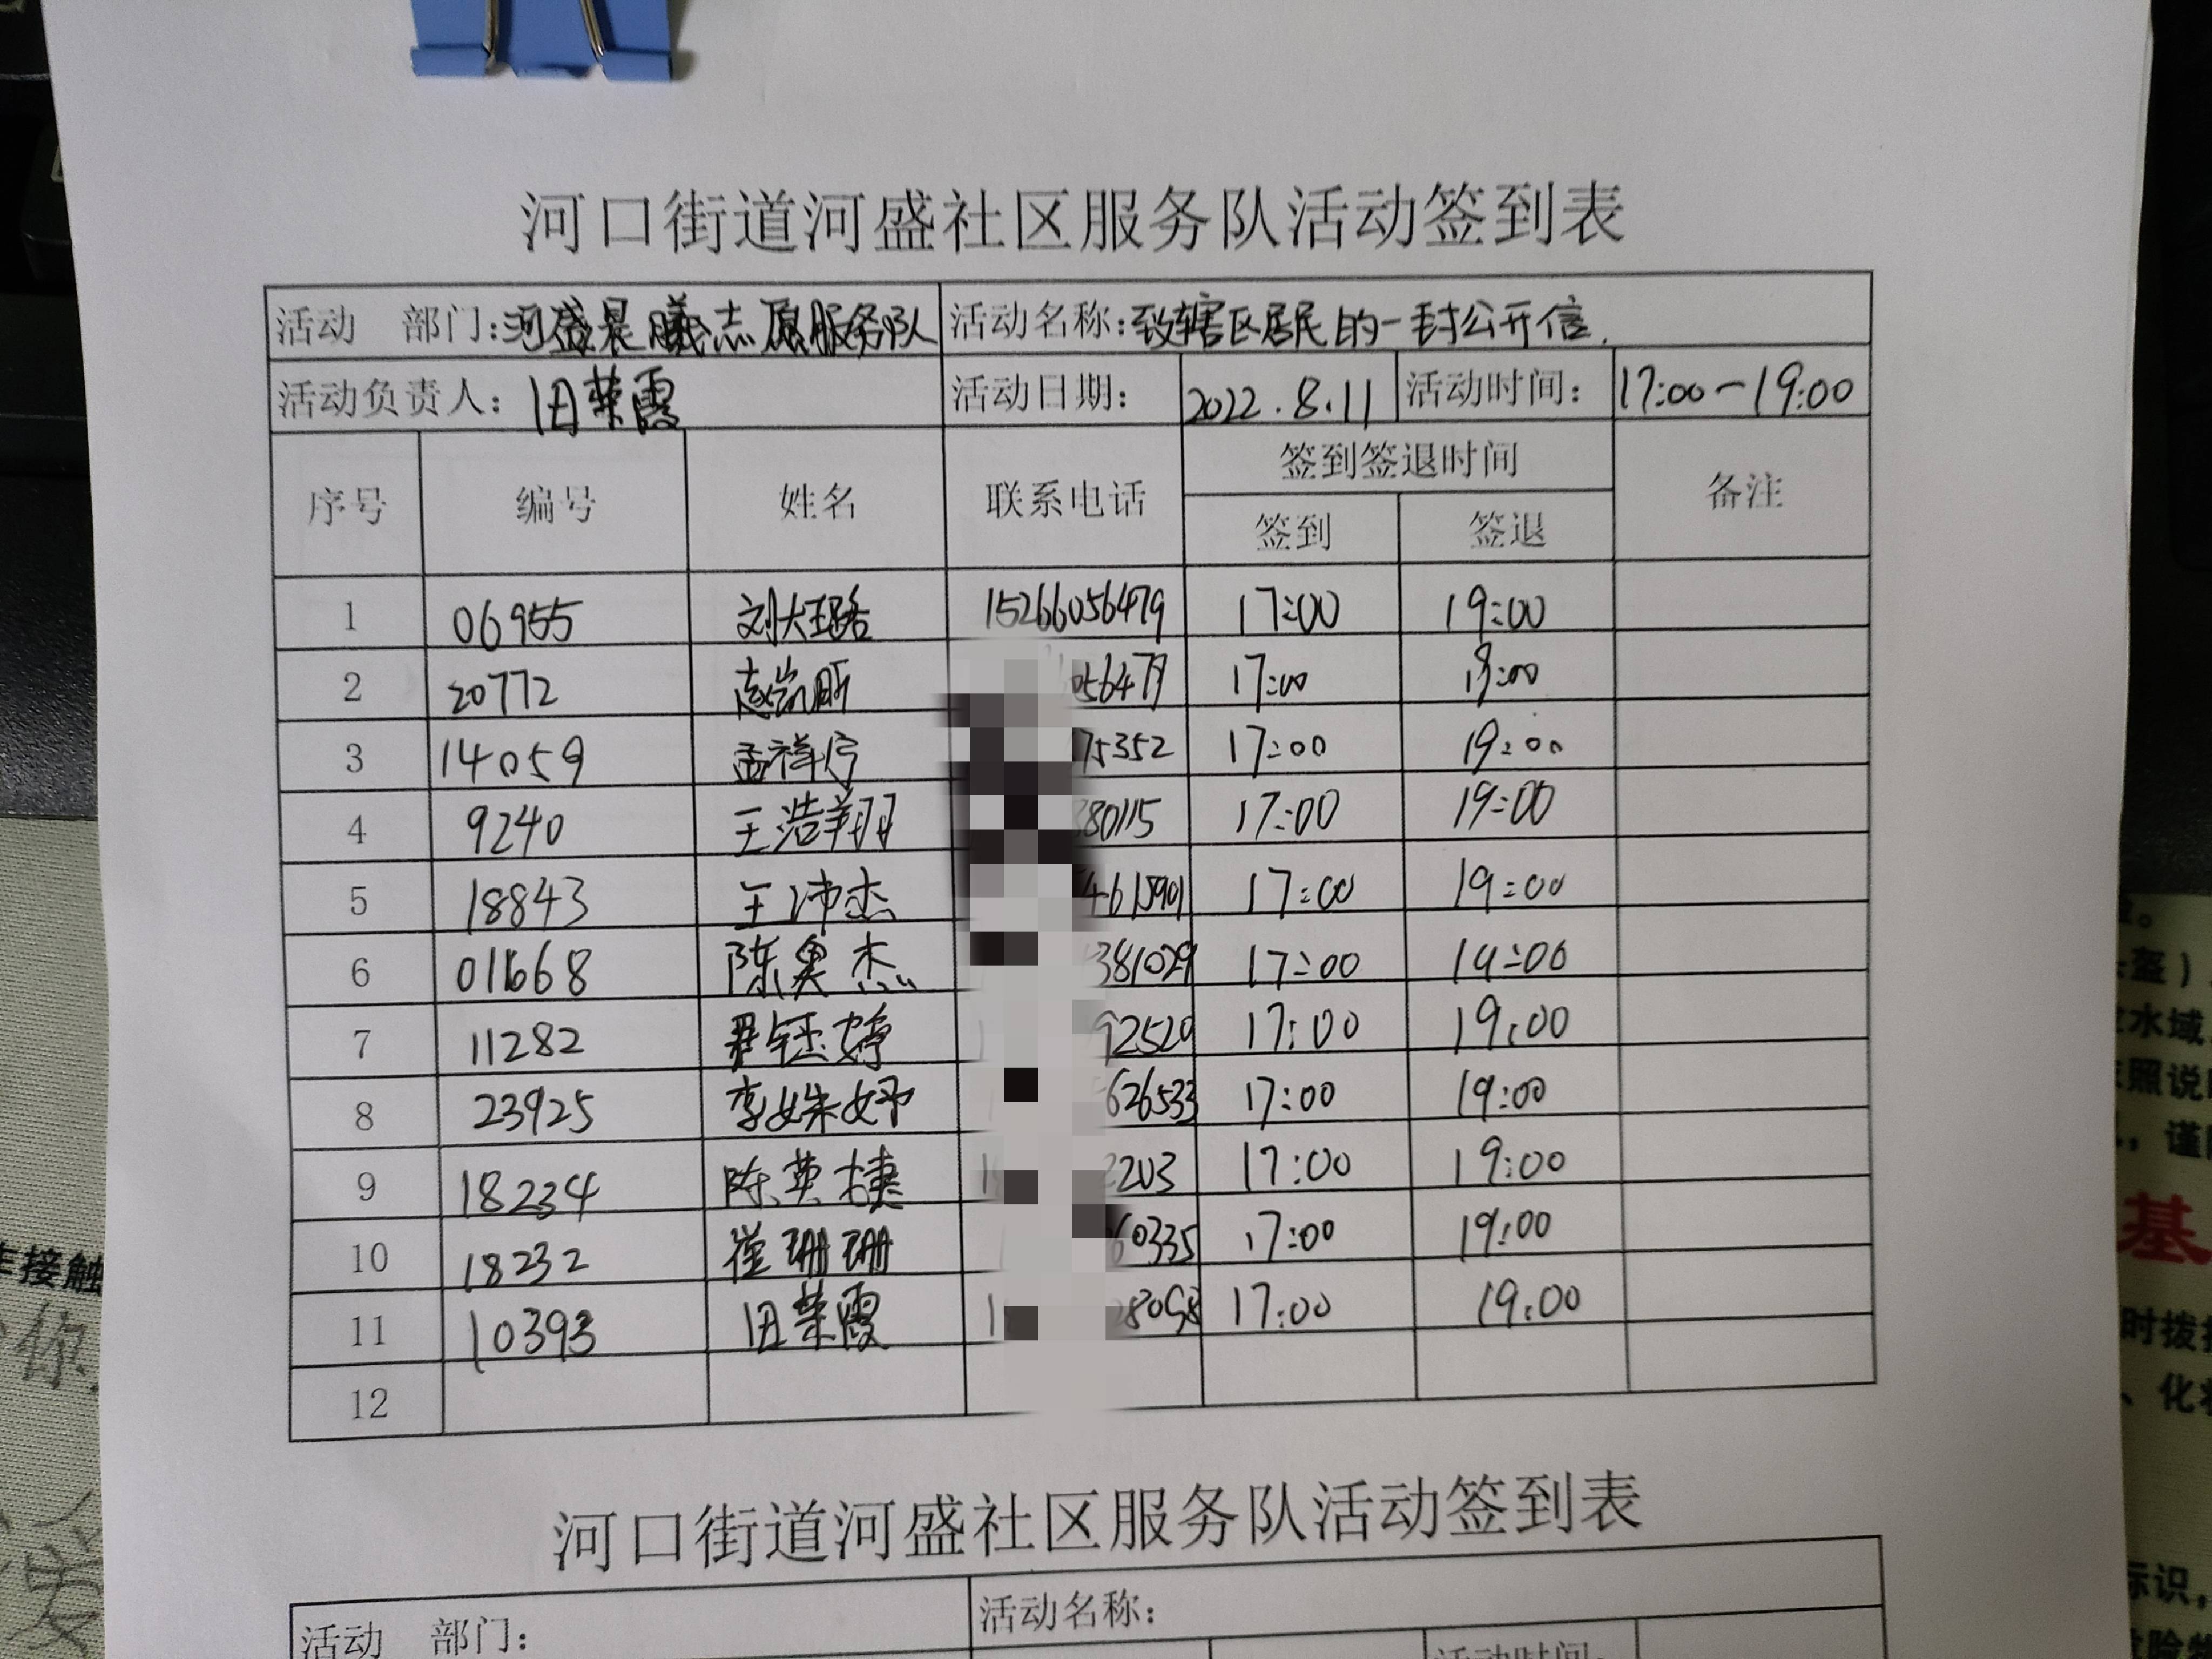 河口街道河盛社区服务队活动签到表
活动 部门:河盛晨曦志愿服务队 活动名称:致辖区居民的一封公开信.
活动负责人:田荣霞 活动日期: 2022.8.11 活动时间: 17:00-19:00
序号 编号 姓名 联系电话 签到签退时间 备注
签到 签退
1 06955 刘大璐 15266056479 17:00 19:00
2 20772 056479 17:00 19:00
3 14059 孟祥 75352 17:00 19:00
4 9240 王浩翔 380115 17:00 19:00
5 18843 王沛杰 17:00 19:00
6 01668 陈奥杰 381029 17:00 19:00
7 11282 尹钰婷 92520 17:00 19:00
8 23925 李姝妤 626533 17:00 19:00
9 18234 陈英捷 2203 17:00 19:00
10 18232 崔珊珊 60335 17:00 19:00
11 10393 田荣霞 28098 17:00 19:00
12
河口街道河盛社区服务队活动签到表
活动 部门: 活动名称:
活动时间:
接触
你
盔)
水域
照说
谨
基
时拨
、化
标识,